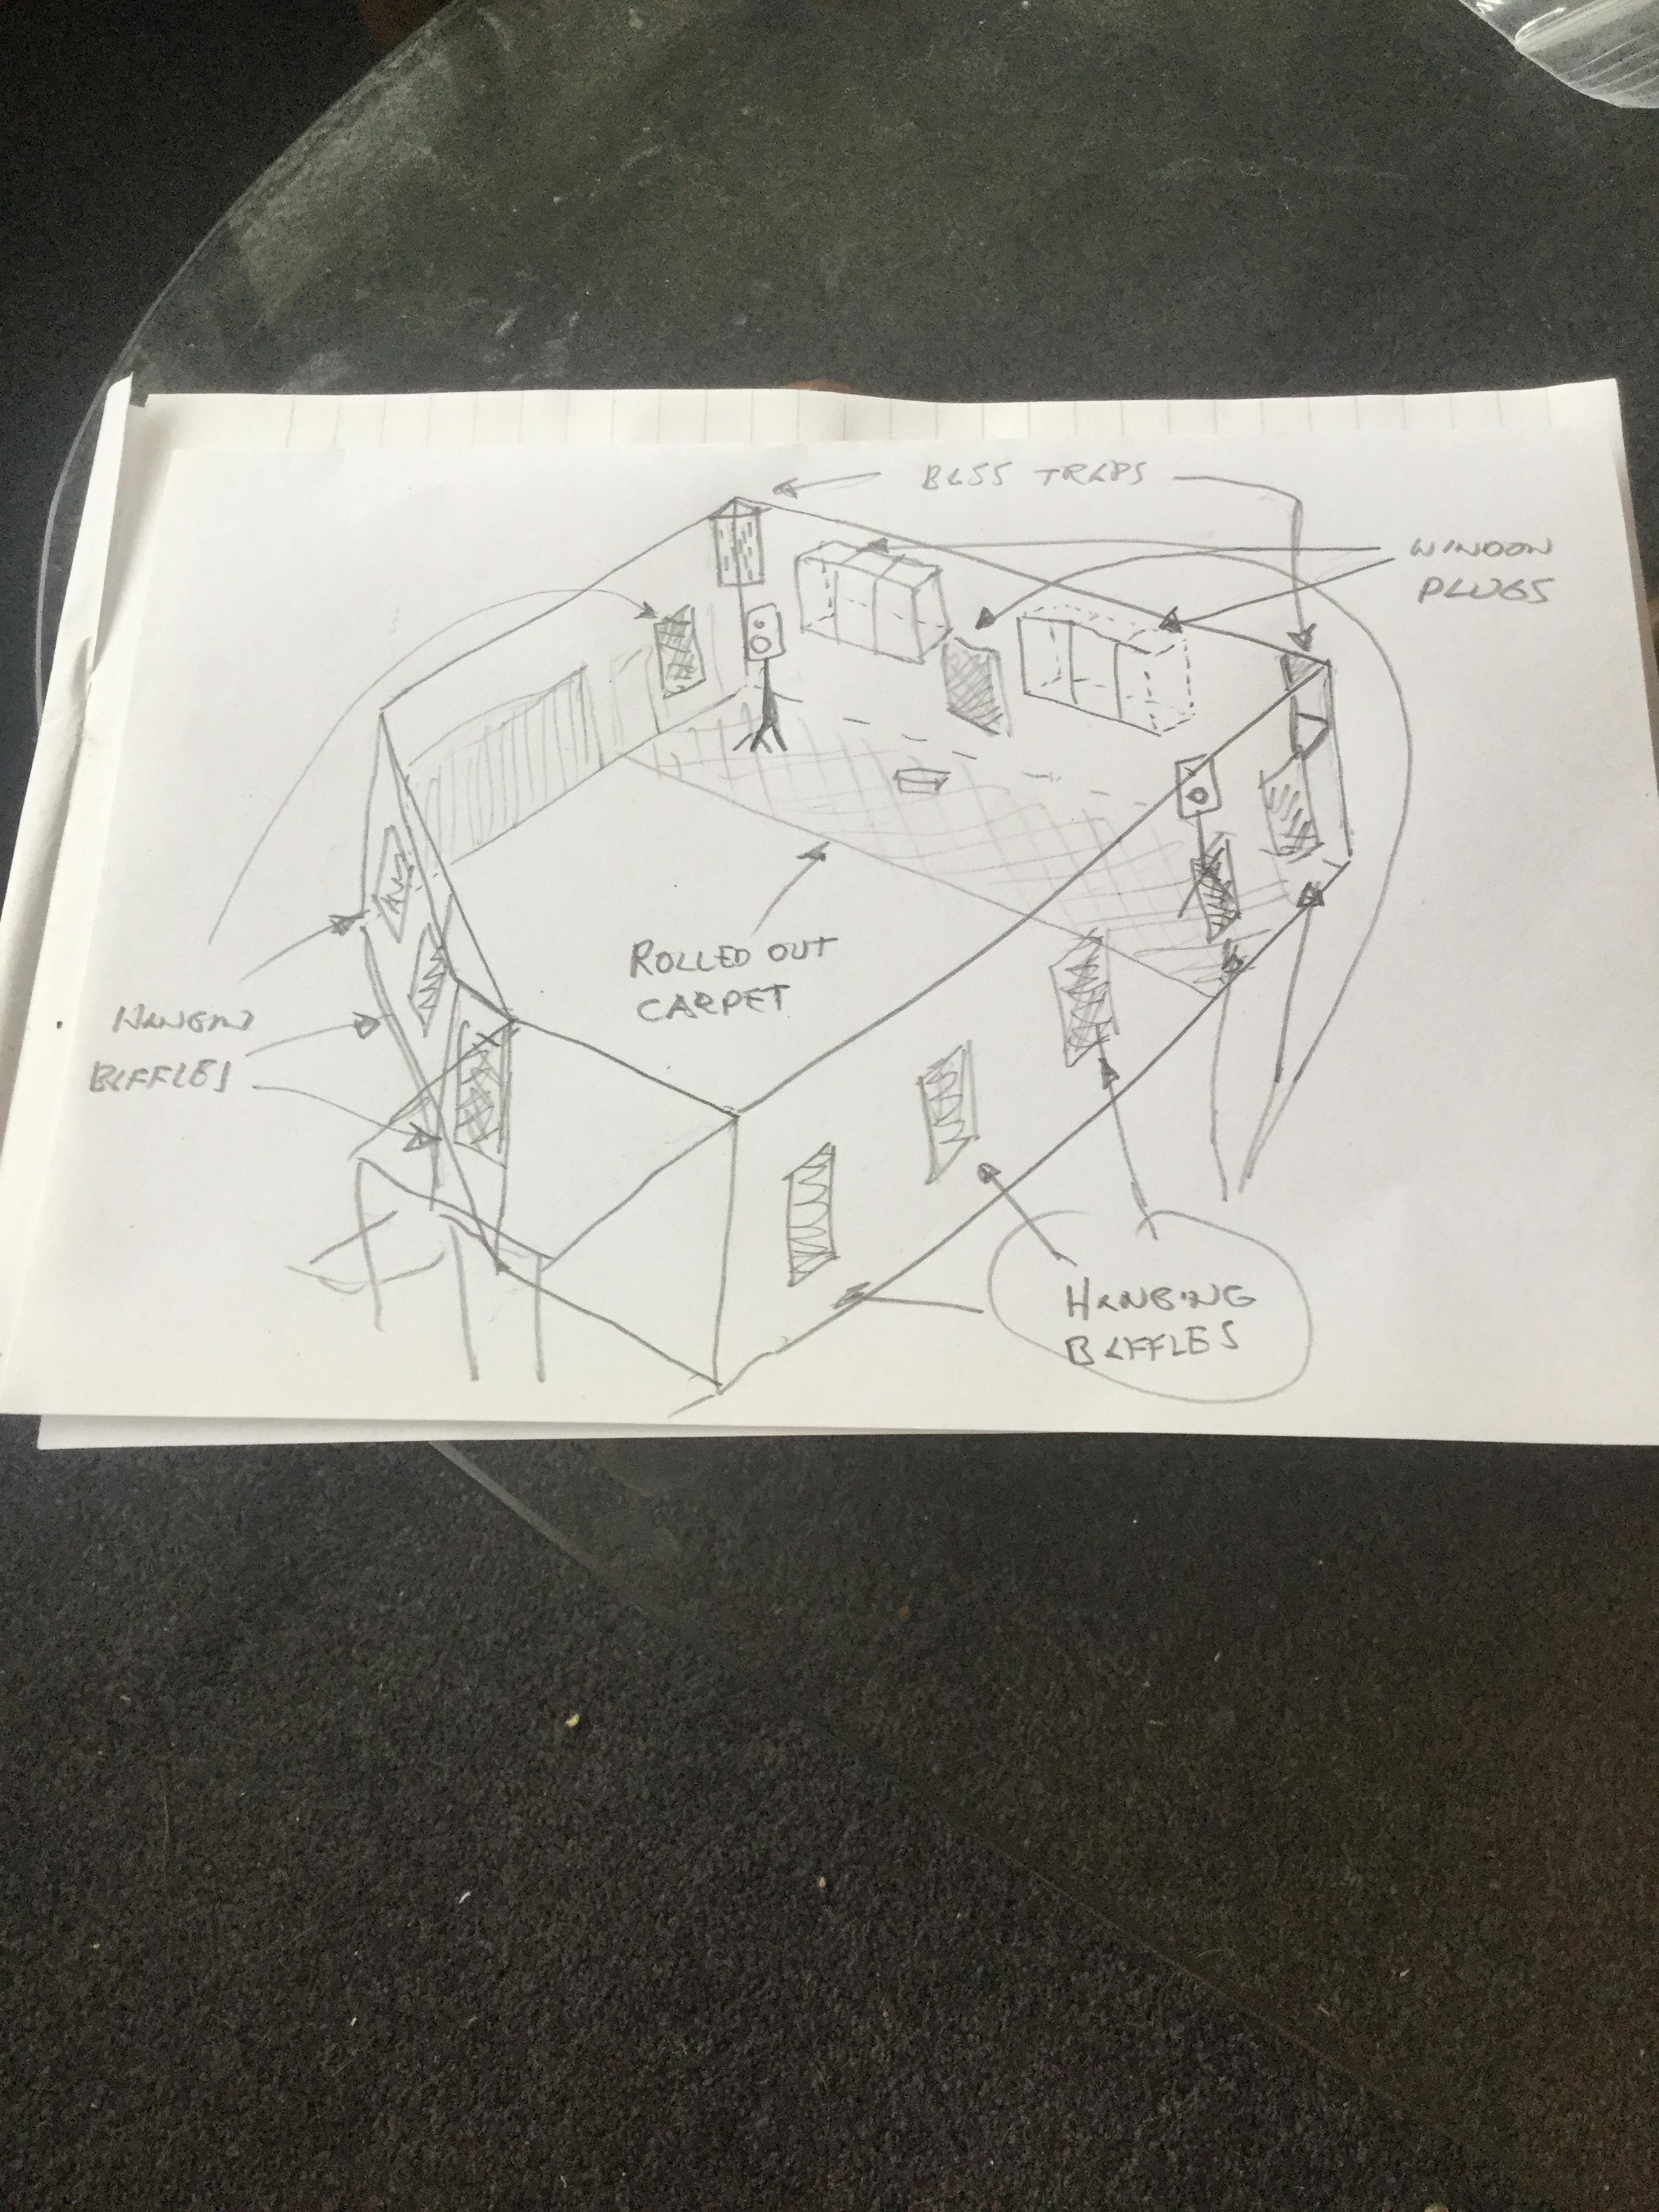 BASS TRAPS
WINDOW
PLUGS
ROLLED OUT
CARPET
HANGING
BAFFLES
HANGING
BAFFLES